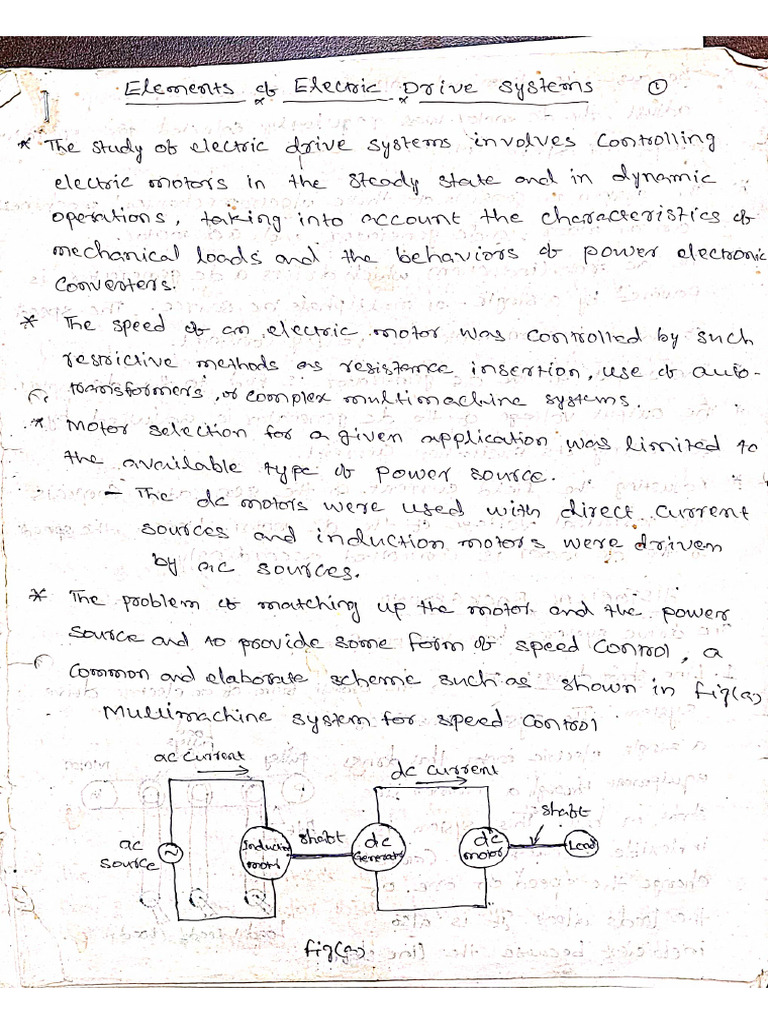 Elements of Electric Drive Systems
①
* The study of electric drive systems involves controlling
electric motors in the steady state and in dynamic
operations, taking into account the characteristics of
mechanical loads and the behaviors of power electronic
converters.
* The speed of an electric motor was controlled by such
restrictive methods as resistance insertion, use of auto-
transformers, or complex multimachine systems.
* Motor selection for a given application was limited to
the available type of power source.
- The dc motors were used with direct current
sources and induction motors were driven
by ac sources.
* The problem of matching up the motor and the power
source and to provide some form of speed control, a
common and elaborate scheme such as shown in fig(a)
Multimachine system for speed control
ac current
dc current
shaft
ac
source
~
Induction
motor
shaft
dc
Generator
dc
motor
Load
fig(a)